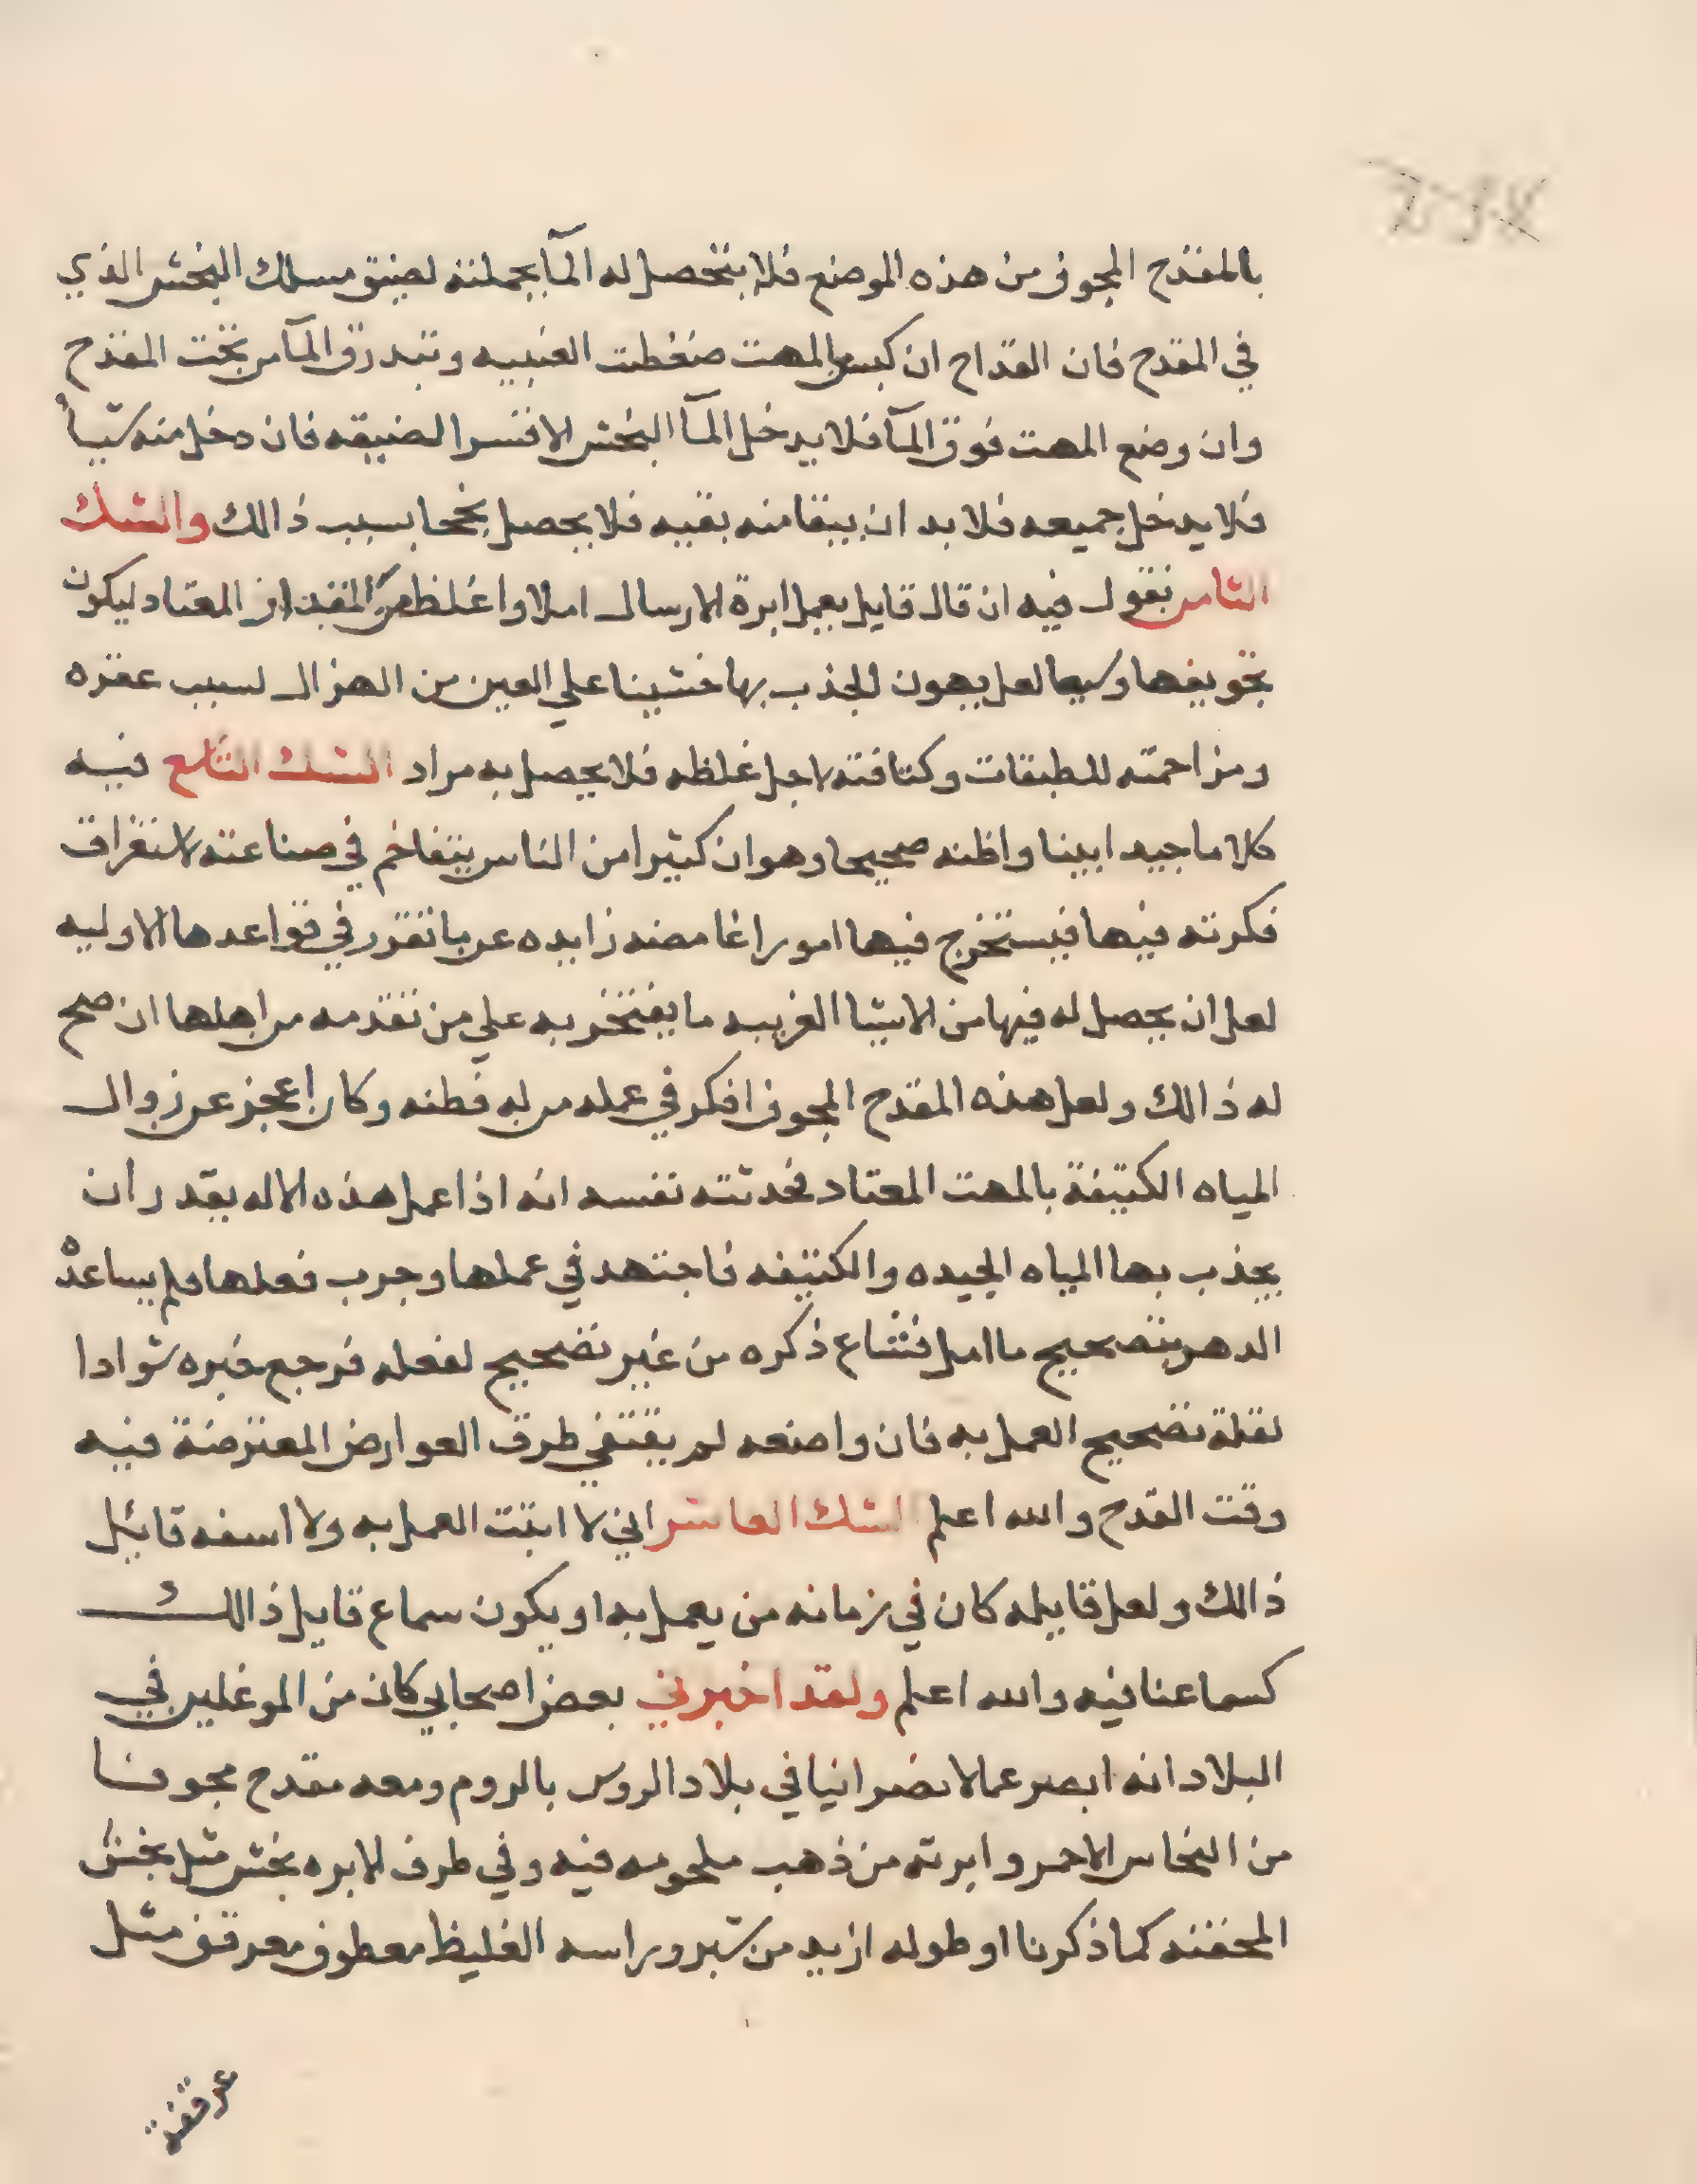 بالمقدح المجوف من هذه الموضع فلا يتحصل له المآ بجملته لضيق مسلك البخش الذي
في المقدح فان القداح ان كبس بالمهت ضغطت العنبيه وتبدرق المآ من تحت المقدح
وان وضع المهت فوق المآ فلا يدخل المآ البخش الا قسرا لضيقه فان دخل منه شيأ
فلا يدخل جميعه فلا بد ان يبقا منه بقيه فلا يحصل نجحا بسبب ذالك والشك
الثامن نقول فيه ان قال قايل يعمل ابرة الارسال املا واغلظ من المقدار المعتاد ليكون
تجويفها وسيعا لعل يهون الجذب بها خشينا علي العين من الهزال لسبب عقره
ومزاحمته للطبقات وكثافته لاجل غلظه فلا يحصل به مراد الشك التاسع فيه
كلاما جيد ابينا واظنه صحيحا وهو ان كثيرا من الناس يتفاخم في صناعته لاستغراق
فكرته فيها فيستخرج فيها امورا غامضه زايده عن ما تقرر في قواعدها الاوليه
لعل ان يحصل له فيها من الاشيا الغريبه ما يفتخر به علي من تقدمه من اهلها ان صح
له ذالك ولعل هذه المقدح المجوف افكر في عمله من له فطنه وكان اعجز عن زوال
المياه الكثيفة بالمهت المعتاد فحدثته نفسه انه اذا عمل هذه الاله يقدر ان
يجذب بها المياه الجيده والكثيفه فاجتهد في عملها وجرب فعلها فلم يساعده
الدهر بتصحيح ما امل فشاع ذكره من غير تصحيح لفعله فرجع خبره شوادا
لقلة تصحيح العمل به فان واضعه لم يقتفي طرق العوارض المعترضة فيه
وقت القدح والله اعلم الشك العاشر اني لا اثبت العمل به ولا اسفه قائل
ذالك ولعل قايله كان في زمانه من يعمل به او يكون سماع قايل ذالك
كسماعنا فيه والله اعلم ولقد اخبرني بعض اصحابي كان من الموغلين في
البلاد انه ابصر عمالا نصرانيا في بلاد الروس بالروم ومعه مقدح مجوفا
من النحاس الاحمر وابرته من ذهب ملحومه فيه وفي طرف الابره بخش مثل بخش
المحقنه كما ذكرنا او طوله ازيد من شبر وراسه الغليظ معطوف معرقف مثل
عرقفة